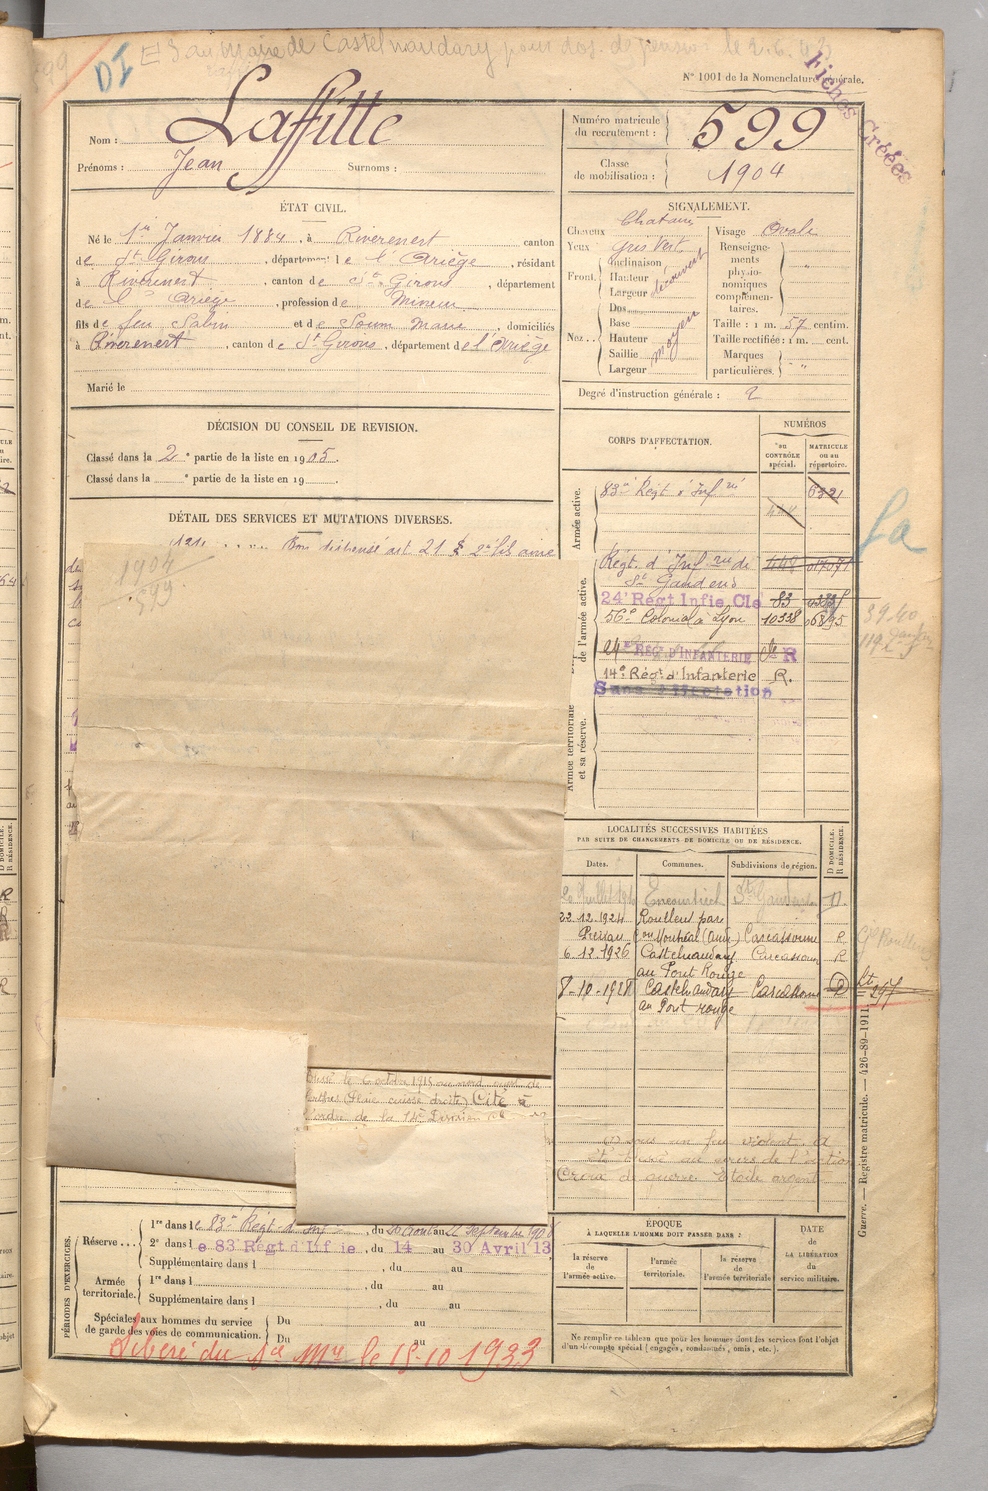 599
DI
E S au Maire de Castelnaudary pour dos. de pension le 2.6.
N° 1001 de la Nomenclature générale.
Fiches Créées
Nom : Laffitte
Prénoms : Jean Surnoms :
Numéro matricule du recrutement : 599
Classe de mobilisation : 1904
ÉTAT CIVIL.
Né le 1er Janvier 1884, à Riverenert canton
de St Girons, département de l'Ariège, résidant
à Riverenert, canton de St Girons, département
de l'Ariège, profession de Mineur
fils de feu Sabin et de Soum Marie, domiciliés
à Riverenert, canton de St Girons, département de l'Ariège
Marié le
SIGNALEMENT.
Cheveux Chatain
Yeux gris vert
Front. Inclinaison
Hauteur
Largeur
découvert
Nez .. Dos
Base
Hauteur
Saillie
Largeur
moyen
Visage Ovale
Renseignements physionomiques complémentaires. "
Taille : 1 m. 57 centim.
Taille rectifiée : 1 m. cent.
Marques particulières. "
Degré d'instruction générale : 2
DÉCISION DU CONSEIL DE REVISION.
Classé dans la 2e partie de la liste en 1905.
Classé dans la e partie de la liste en 19
DÉTAIL DES SERVICES ET MUTATIONS DIVERSES.
Bon dispensé art 21 § 2e fils ainé
1904
599
CORPS D'AFFECTATION.
NUMÉROS
au CONTRÔLE spécial.
MATRICULE ou au répertoire.
Armée active.
83e Régt d'Infrie 6321
de l'armée active.
Régt. d'Infrie de St Gaudens 448 01707
24e Régt Infie Cle 83
56e Colonial à Lyon 10338 06895
24e RÉG. D'INFANTERIE Cle R
14e Rég. d'Infanterie R.
Sans affectation
Armée territoriale et sa réserve.
fa
39.40
LOCALITÉS SUCCESSIVES HABITÉES
PAR SUITE DE CHANGEMENTS DE DOMICILE OU DE RÉSIDENCE.
Dates. Communes. Subdivisions de région. D DOMICILE. R RÉSIDENCE.
Encourtiech St Gaudens D.
22.12.1924 Roullens par
Preixan ou Montréal (Aude) Carcassonne R
6.12.1926 Castelnaudary Carcassonne R
au Pont Rouge
8-10-1928 Castelnaudary Carcassonne D
au Pont rouge
297
Blessé le 6 octobre 1915 au nord ouest de
(Plaie cuisse droite) Cité à
l'ordre de la 14e Division
sous un feu violent. A
été blessé au cours de l'action
Croix de guerre. Etoile argent
PÉRIODES D'EXERCICES.
Réserve... 1re dans le 83e Régt d'Inf, du 20 Aout au Septembre 190
2e dans le 83 Régt d'Infie, du 14 au 30 Avril 13
Supplémentaire dans l, du au
Armée territoriale. 1re dans l, du au
Supplémentaire dans l, du au
Spéciales aux hommes du service de garde des voies de communication. Du au
Du au
Libéré du Sce Mre le 15-10 1933
ÉPOQUE
À LAQUELLE L'HOMME DOIT PASSER DANS :
la réserve de l'armée active.
l'armée territoriale.
la réserve de l'armée territoriale
DATE DE LA LIBÉRATION du service militaire.
Ne remplir ce tableau que pour les hommes dont les services font l'objet
d'un décompte spécial (engagés, condamnés, omis, etc.).
Guerre. — Registre matricule. — 426-89-1911